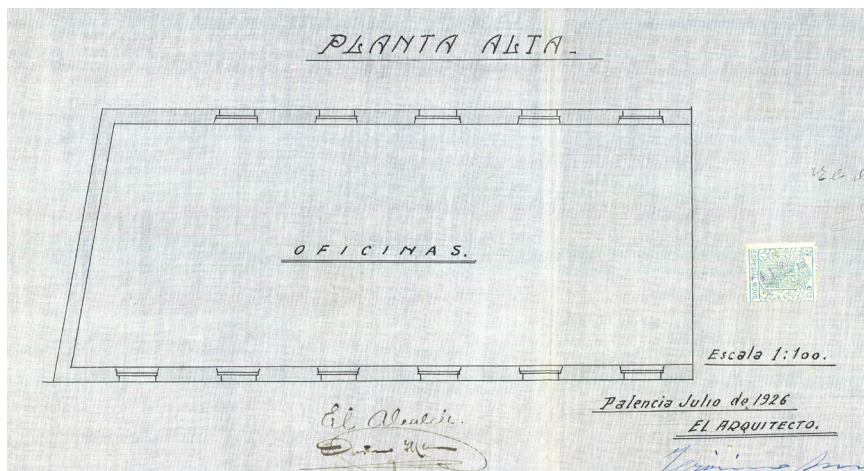 PLANTA ALTA.
OFICINAS.
Escala 1:100.
Palencia Julio de 1926
EL ARQUITECTO.
El Alcalde.